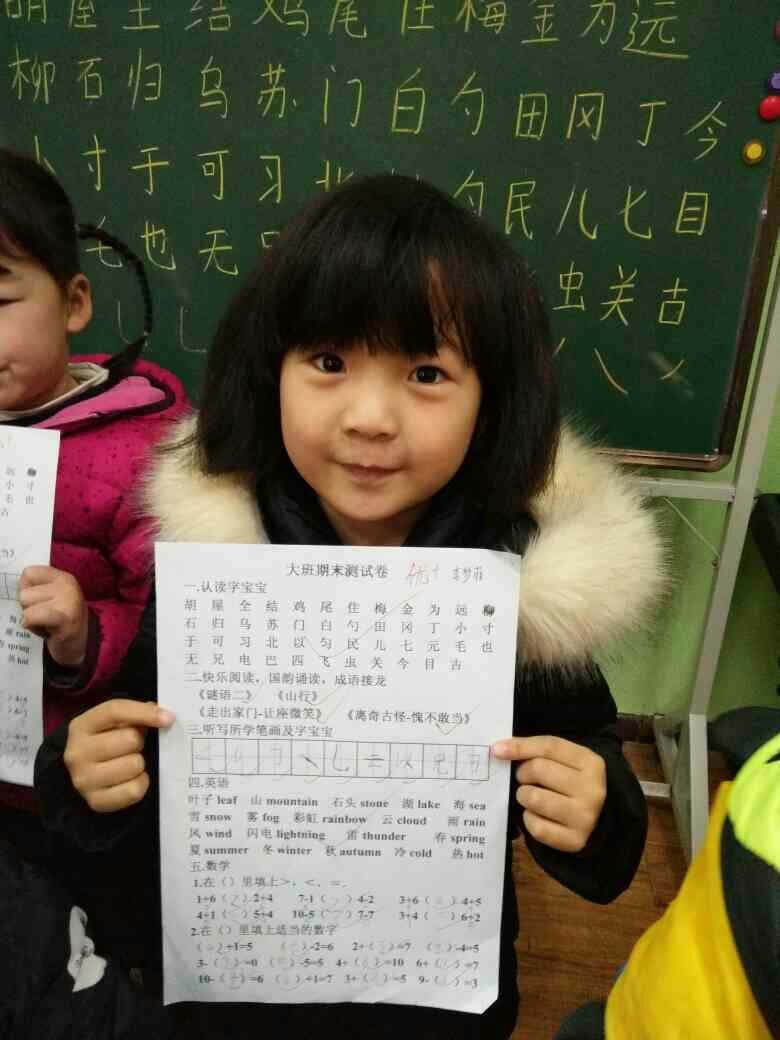 胡 屋 全 结 鸡 尾 住 梅 金 为 远
柳 石 归 乌 苏 门 白 勺 田 冈 丁 今
小 寸 于 可 习 北 匀 民 儿 七 目
毛 也 无 虫 关 古
大班期末测试卷 优+
一.认读字宝宝
胡 屋 全 结 鸡 尾 住 梅 金 为 远 柳
石 归 乌 苏 门 白 勺 田 冈 丁 小 寸
于 可 习 北 以 匀 民 儿 七 元 毛 也
无 兄 电 巴 四 飞 虫 关 今 目 古
二.快乐阅读，国韵诵读，成语接龙
《谜语二》 《山行》
《走出家门-让座微笑》 《离奇古怪-愧不敢当》
三.听写所学笔画及字宝宝
四.英语
叶子 leaf 山 mountain 石头 stone 湖 lake 海 sea
雪 snow 雾 fog 彩虹 rainbow 云 cloud 雨 rain
风 wind 闪电 lightning 雷 thunder 春 spring
夏 summer 冬 winter 秋 autumn 冷 cold 热 hot
五.数学
1.在（）里填上＞，＜，＝.
1+6（ ）2+4 7-1（ ）4-2 3+6（ ）4+5
4+1（ ）5+4 10-5（ ）7-7 3+4（ ）6+2
2.在（）里填上适当的数字
（ ）+1=5 （ ）-2=6 2+（ ）=7 （ ）-4=5
3-（ ）=0 （ ）-5=5 4+（ ）=10 6+（ ）=7
10-（ ）=6 （ ）+1=7 3+（ ）=5 9-（ ）=3
远 柳
小 寸
毛 也
古
rain
spring
热 hot